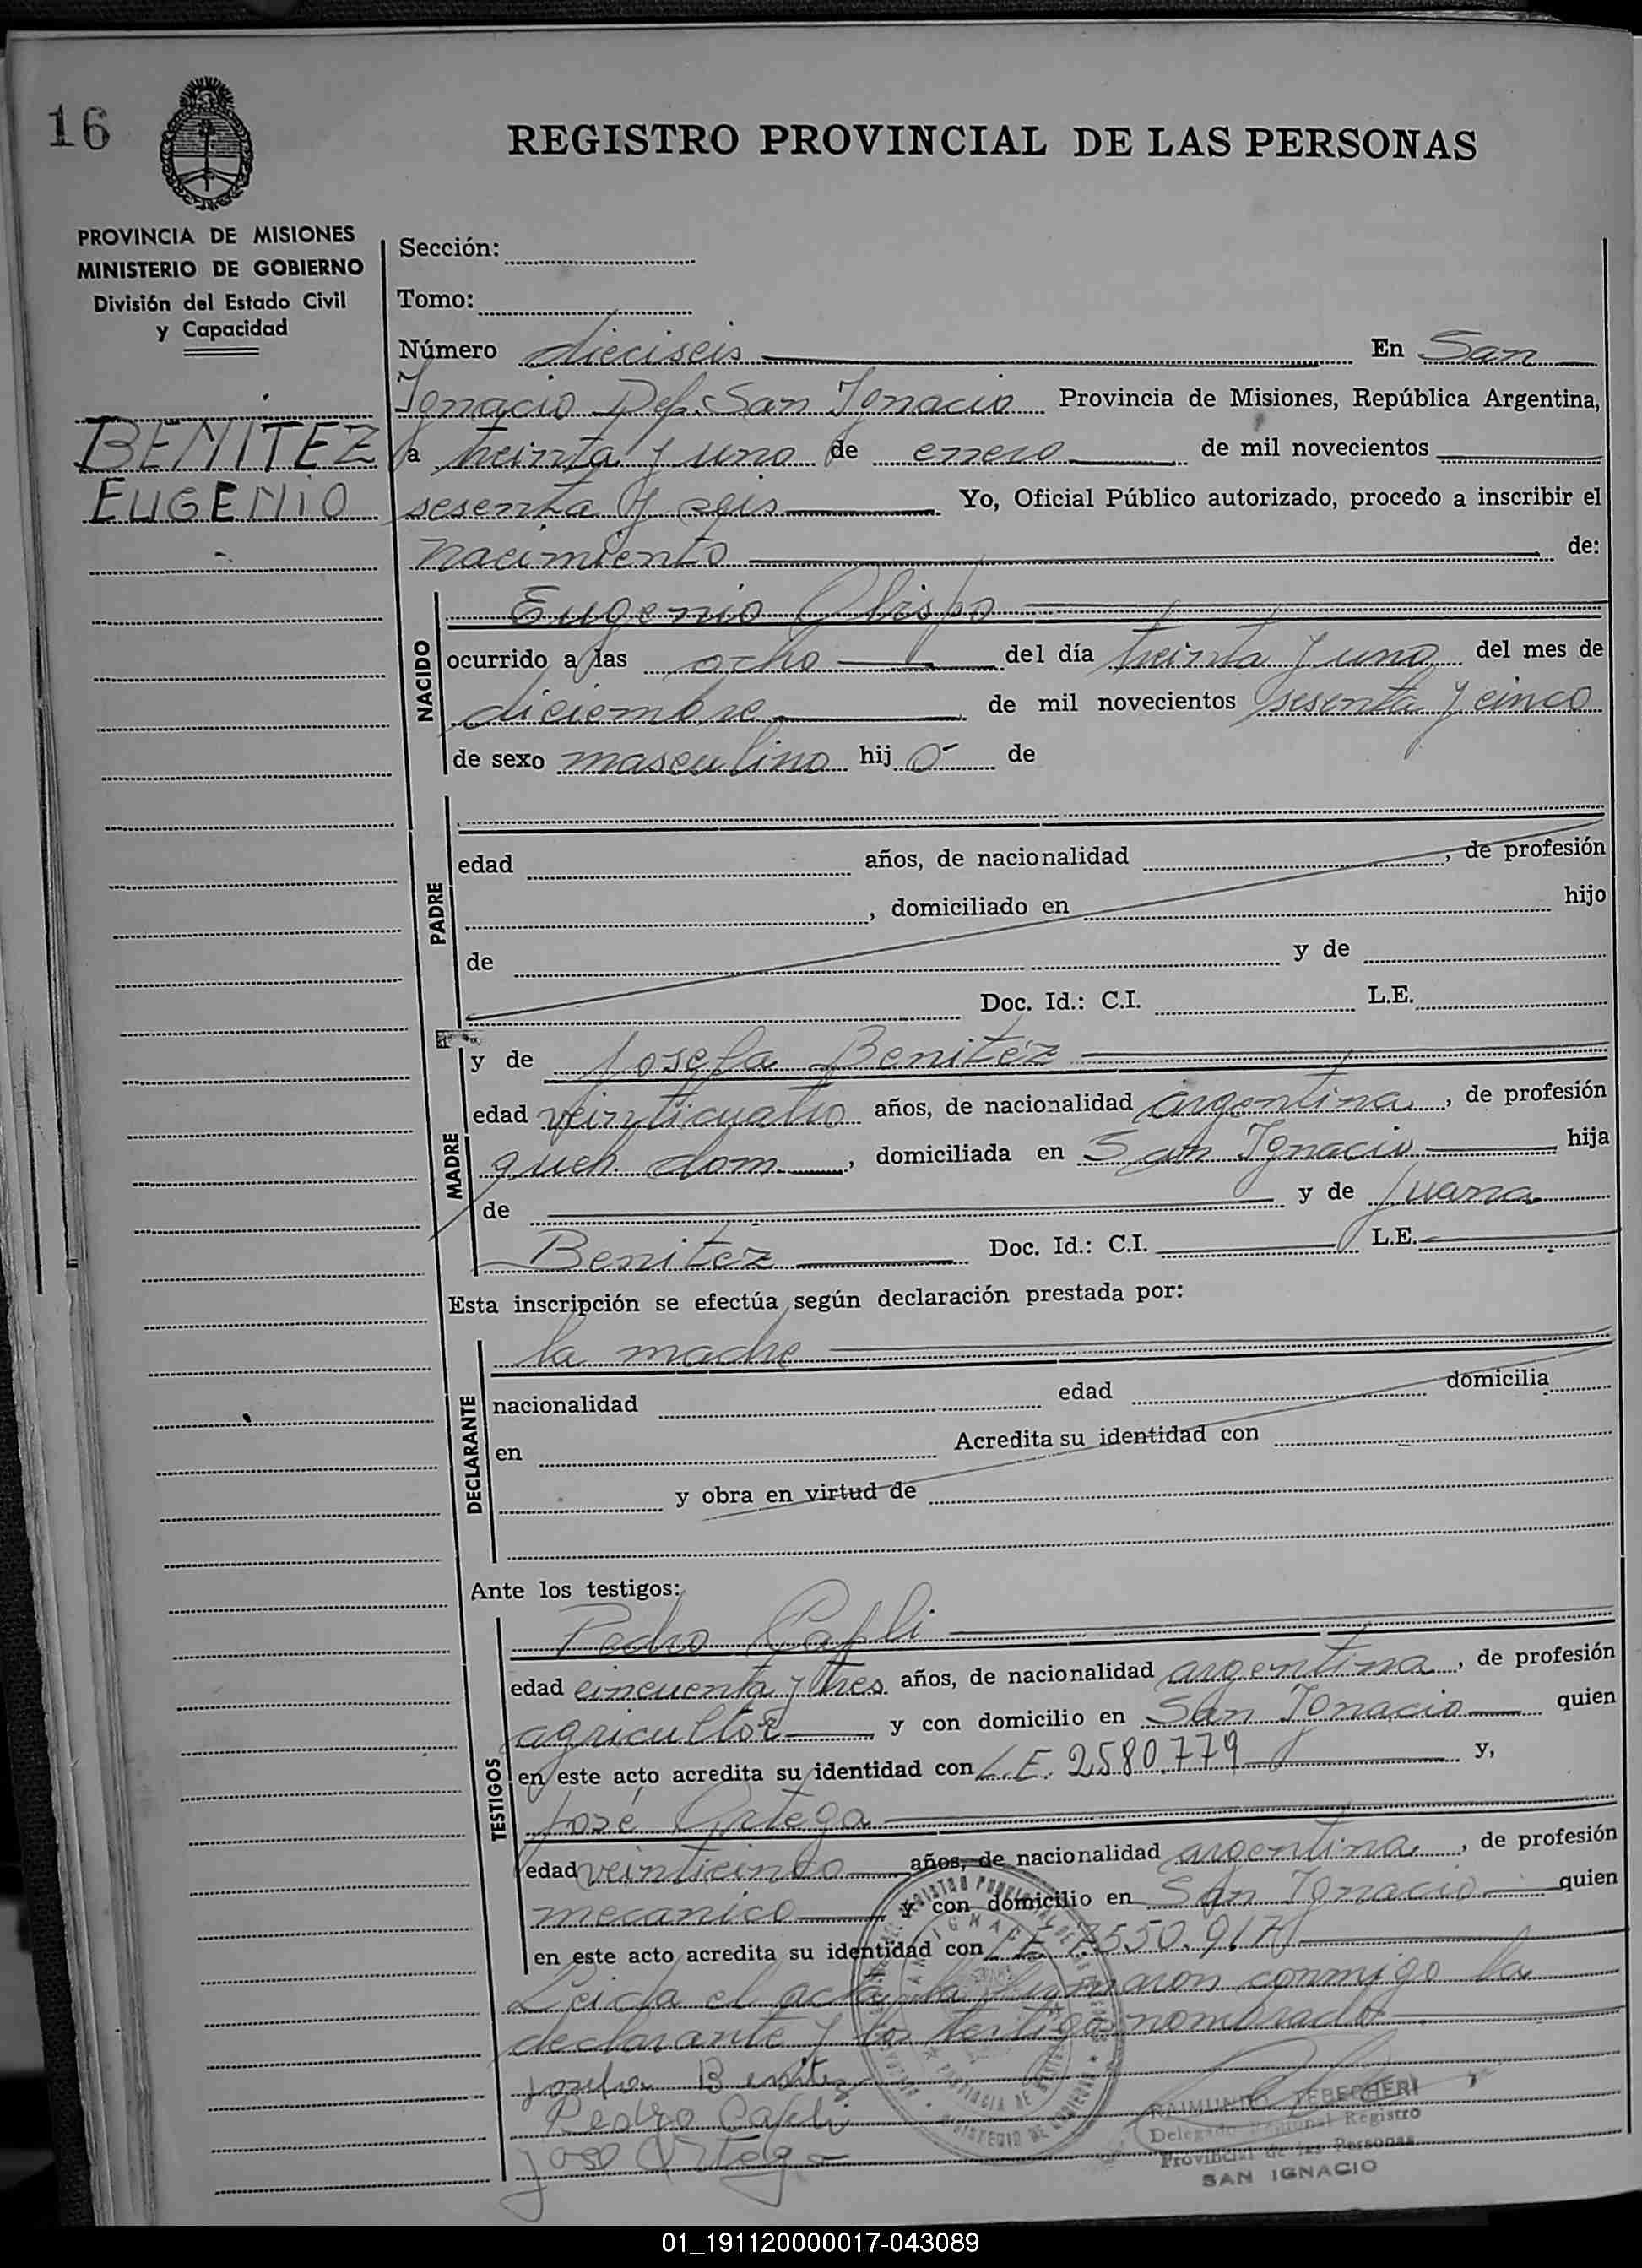 16
REGISTRO PROVINCIAL DE LAS PERSONAS
PROVINCIA DE MISIONES
MINISTERIO DE GOBIERNO
División del Estado Civil
y Capacidad
BENITEZ
EUGENIO
Sección:
Tomo:
Número dieciseis En San
Ignacio Dep. San Ignacio Provincia de Misiones, República Argentina,
a treinta y uno de enero de mil novecientos
sesenta y seis Yo, Oficial Público autorizado, procedo a inscribir el
nacimiento de:
NACIDO
Eugenio Obispo
ocurrido a las ocho del día treinta y uno del mes de
diciembre de mil novecientos sesenta y cinco
de sexo masculino hij o de
PADRE
edad años, de nacionalidad , de profesión
, domiciliado en hijo
de y de
Doc. Id.: C.I. L.E.
MADRE
y de Josefa Benitez
edad veinticuatro años, de nacionalidad argentina, de profesión
queh. dom. , domiciliada en San Ignacio hija
de y de Juana
Benitez Doc. Id.: C.I. L.E.
Esta inscripción se efectúa según declaración prestada por:
DECLARANTE
la madre
nacionalidad edad domicilia
en Acredita su identidad con
y obra en virtud de
Ante los testigos:
TESTIGOS
Pedro Capli
edad cincuenta y tres años, de nacionalidad argentina, de profesión
agricultor y con domicilio en San Ignacio quien
en este acto acredita su identidad con L.E. 2580.779 y,
José Ortega
edad veinticinco años, de nacionalidad argentina, de profesión
mecanico y con domicilio en San Ignacio quien
en este acto acredita su identidad con L.E. 7550.917
Leida el acta la firmaron conmigo la
declarante y los testigos nombrado
Josefa Benitez
Pedro Capli
Jose Ortega
RAIMUNDO
Delegado Regional Registro
Provincial de las Personas
SAN IGNACIO
01_191120000017-043089